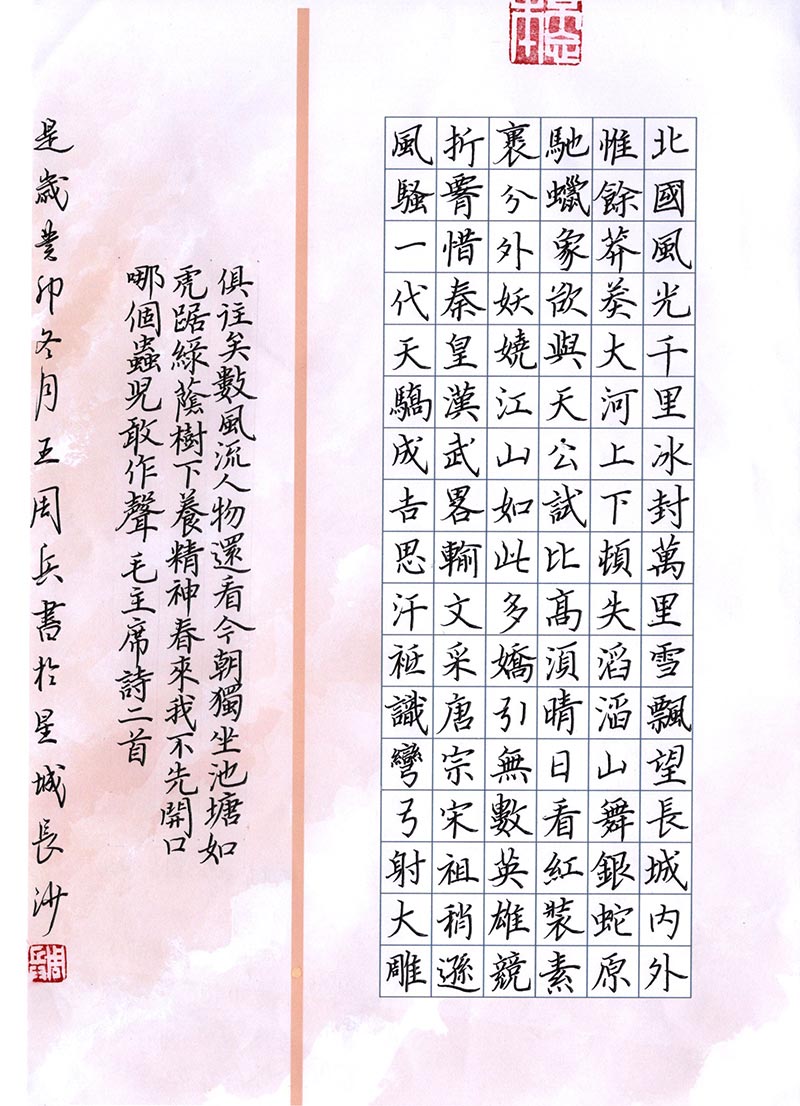 北國風光千里冰封萬里雪飄望長城內外
惟餘莽莽大河上下頓失滔滔山舞銀蛇原
馳蠟象欲與天公試比高須晴日看紅裝素
裹分外妖嬈江山如此多嬌引無數英雄競
折腰惜秦皇漢武畧輸文采唐宗宋祖稍遜
風騷一代天驕成吉思汗祗識彎弓射大雕
俱往矣數風流人物還看今朝獨坐池塘如
虎踞綠蔭樹下養精神春來我不先開口
哪個蟲兒敢作聲 毛主席詩二首
是歲癸卯冬月王周兵書於星城長沙
周兵